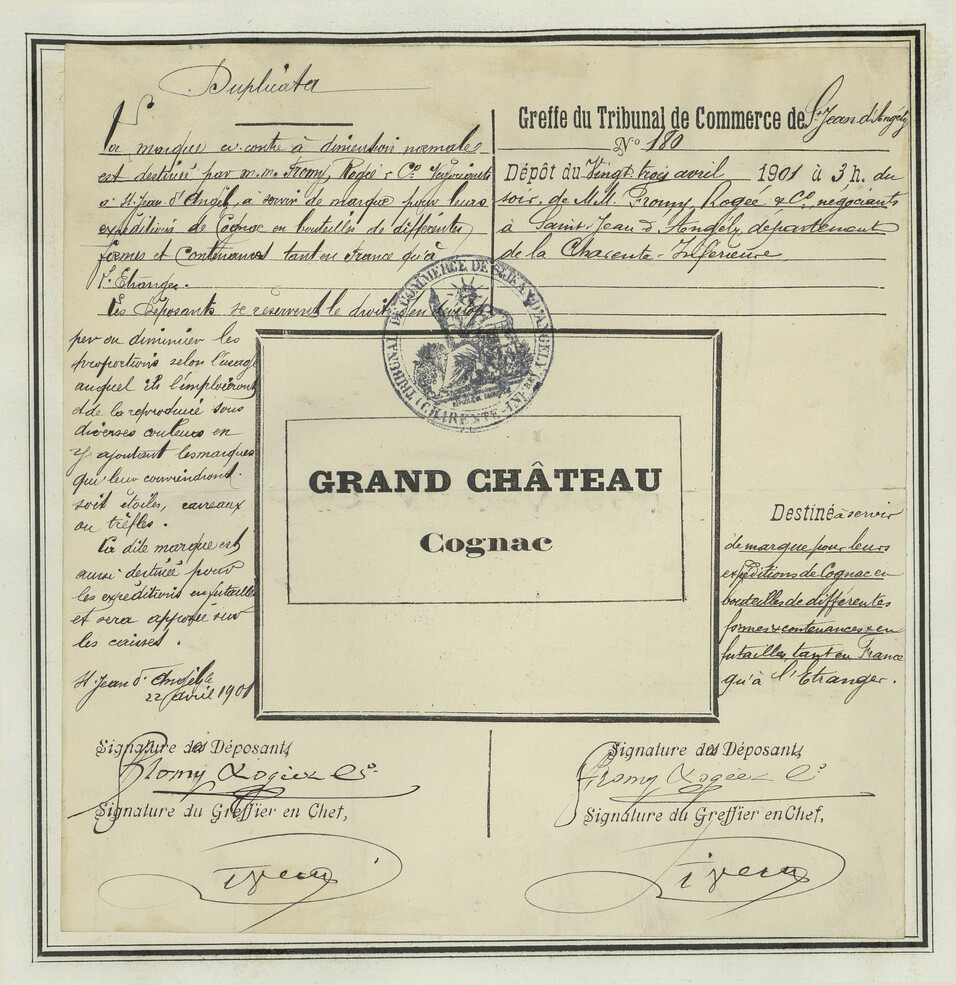 Duplicata
La marque ci-contre à dimension normale
est destinée par m.m. Fromy, Rogée & Cº Négociants
à St Jean d'Angély, à servir de marque pour leurs
expéditions de Cognac en bouteilles de différentes
formes et contenances tant en France qu'à
l'Etranger.
Les Déposants se réservent le droit d'en dévelop-
per ou diminuer les
proportions selon l'usage
auquel ils l'emploieront
et de la reproduire sous
diverses couleurs en
y ajoutant les marques
qui leur conviendront
soit étoiles, carreaux
ou trèfles.
La dite marque est
aussi destinée pour
les expéditions en futailles
et sera apposée sur
les caisses.
St Jean d'Angély le
22 avril 1901
Greffe du Tribunal de Commerce de St Jean d'Angély
Nº 180
Dépôt du Vingt trois avril 1901 à 3 h. du
soir, de M.M. Fromy, Rogée & Cº, négociants
à Saint-Jean d'Angély, département
de la Charente-Inférieure.
TRIBUNAL DE COMMERCE DE St JEAN D'ANGELY
(CHARENTE-INFRE)
GRAND CHÂTEAU
Cognac
Destiné à servir
de marque pour leurs
expéditions de Cognac en
bouteilles de différentes
formes & contenances & en
futailles, tant en France
qu'à l'Etranger.
Signature des Déposants
Fromy Rogée & Cº
Signature du Greffier en Chef,
Signature des Déposants
Fromy Rogée & Cº
Signature du Greffier en Chef,